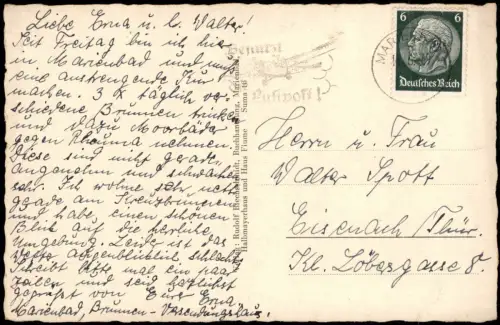 Liebe Erna u. l. Walter!
Seit Freitag bin ich hier
in Marienbad und muß
eine anstrengende Kur
machen. 3 x täglich ver-
schiedene Brunnen trinken
und dazu Moorbäder
gegen Rheuma nehmen.
Diese sind nicht gerade
angenehm und schmecken
sehr. Ich wohne sehr nett
gerade am Kreuzbrunnen
und habe einen schönen
Blick auf die herrliche
Umgebung. Leider ist das
Wetter augenblicklich schlecht.
Schreibt bitte mal ein paar
Zeilen und seid herzlichst
gegrüßt von Eure Erna
Marienbad, Brunnen-Versendungshaus.
Rudolf Buchhandlung, Marienbad
Hallmayerhaus und Haus Flume
Benützt
Luftpost!
MAR
6 6
Deutsches Reich
Herrn u. Frau
Walter Spott
Eisenach/Thür.
Kl. Löbergasse 8.